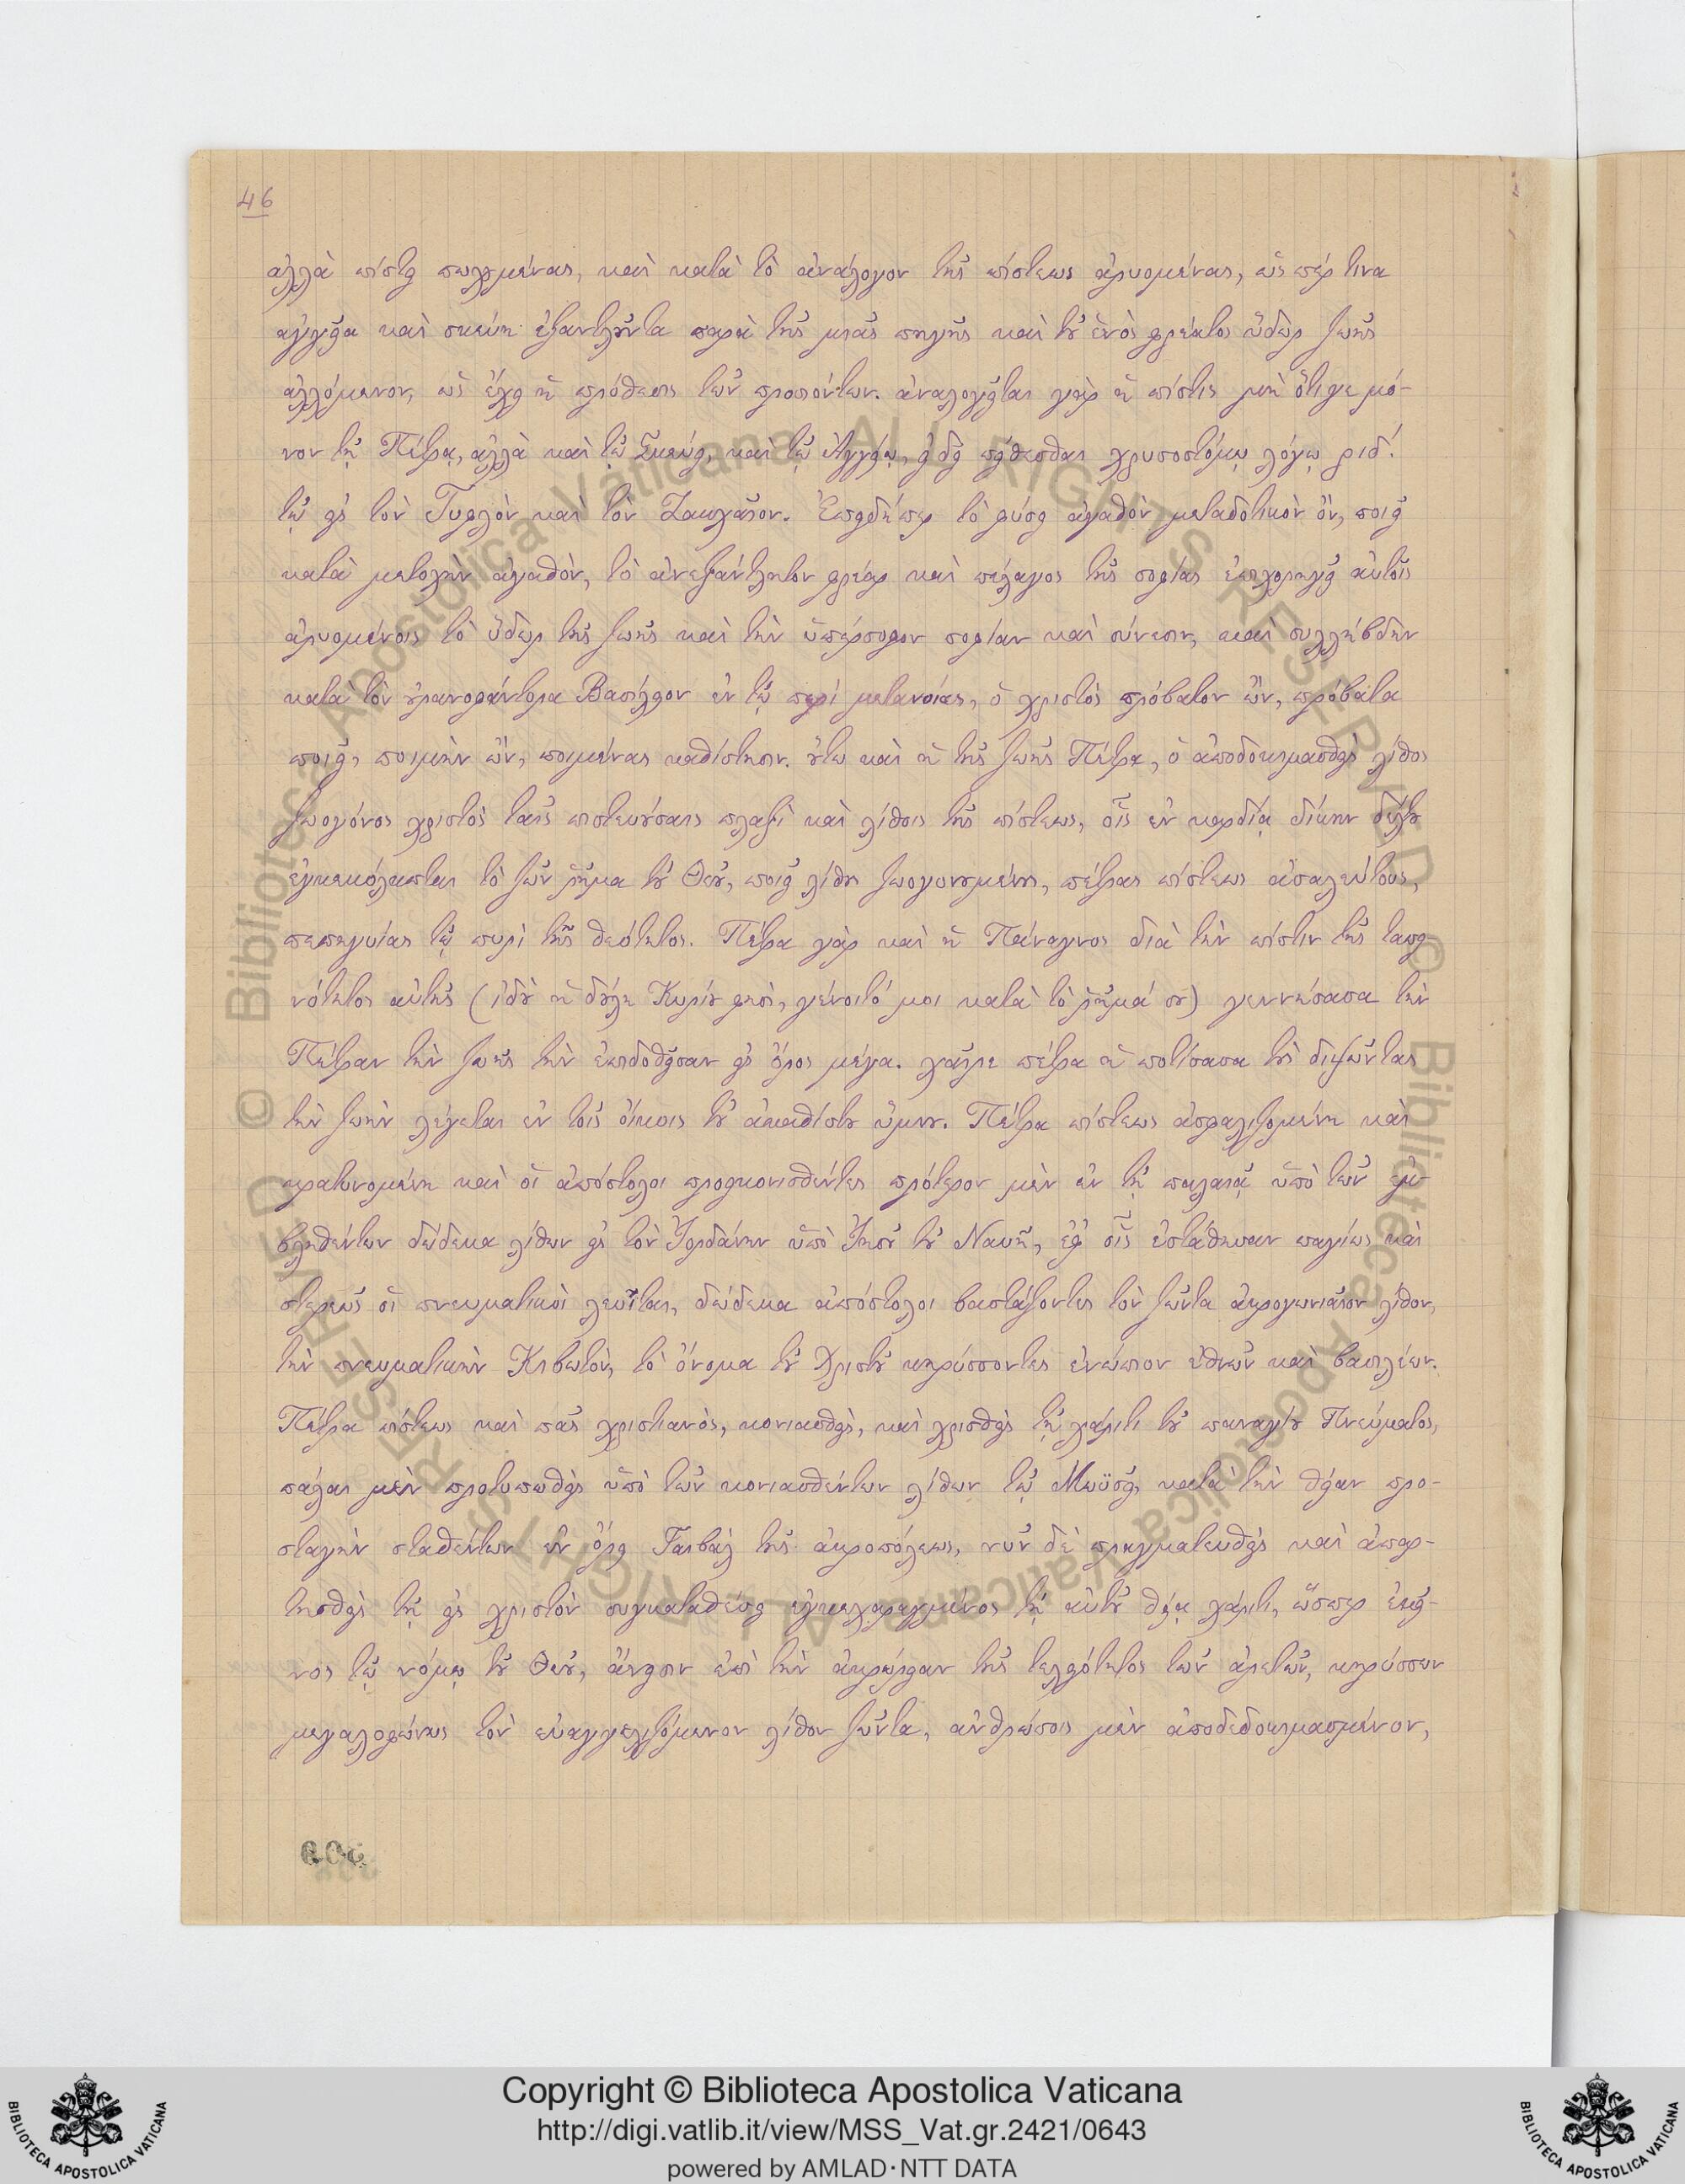 46
ἀλλὰ πίστει πωλουμένας, καὶ κατὰ τὸ ἀνάλογον τῆς πίστεως ἀρυομένας, ὥς πέρ τινα
ἀγγεῖα καὶ σκεύη ἐξαντλοῦντα παρὰ τῆς μιᾶς πηγῆς καὶ τοῦ ἑνὸς φρέατος ὕδωρ ζωῆς
ἀλλόμενον, ὡς ἔχει ἡ πρόθεσις τῶν προσιόντων. ἀναλογεῖται γὰρ ἡ πίστις μὴ ὅτιγε μό-
νον τῇ Πέτρᾳ, ἀλλὰ καὶ τῷ Σκεύει, καὶ τῷ Ἀγγείῳ, εἰ δεῖ πείθεσθαι χρυσοστόμῳ λόγῳ ριδ΄.
τῷ εἰς τὸν Τυφλὸν καὶ τὸν Ζακχαῖον. Ἐπειδήπερ τὸ φύσει ἀγαθὸν μεταδοτικὸν ὂν, ποιεῖ
κατὰ μετοχὴν ἀγαθὸν, τὸ ἀνεξάντλητον φρέαρ καὶ πέλαγος τῆς σοφίας ἐπιχορηγεῖ αὐτοῖς
ἀρυομένοις τὸ ὕδωρ τῆς ζωῆς καὶ τὴν ὑπέρσοφον σοφίαν καὶ σύνεσιν, καὶ συλλήβδην
κατὰ τὸν οὐρανοφάντορα Βασίλειον ἐν τῷ περὶ μετανοίας, ὁ χριστὸς πρόβατον ὢν, πρόβατα
ποιεῖ, ποιμὴν ὢν, ποιμένας καθίστησιν. οὕτω καὶ ἡ τῆς ζωῆς Πέτρα, ὁ ἀποδοκιμασθεὶς λίθος
ζωογόνος χριστὸς ταῖς πιστευούσαις πλαξὶ καὶ λίθοις τῆς πίστεως, οἷς ἐν καρδίᾳ δίκην δέλτου
ἐγκεκόλαπται τὸ ζῶν ῥῆμα τοῦ Θεοῦ, ποιεῖ λίθους ζωογονουμένους, πέτρας πίστεως ἀσαλεύτους,
πεπηγυίας τῷ πυρὶ τῆς θεότητος. Πέτρα γὰρ καὶ ἡ Πάναγνος διὰ τὴν πίστιν τῆς ταπει-
νότητος αὐτῆς (ἰδοὺ ἡ δούλη Κυρίου φησὶ, γένοιτό μοι κατὰ τὸ ῥῆμά σου) γεννήσασα τὴν
Πέτραν τὴν ζωῆς τὴν ἐπιδοθεῖσαν εἰς ὄρος μέγα. χαῖρε πέτρα ἡ ποτίσασα τοὺς διψῶντας
τὴν ζωὴν λέγεται ἐν τοῖς οἴκοις τοῦ ἀκαθίστου ὕμνου. Πέτρα πίστεως ἀσφαλιζομένη καὶ
κρατυνομένη καὶ οἱ ἀπόστολοι προεικονισθέντες πρότερον μὲν ἐν τῇ παλαιᾷ ὑπὸ τῶν ἐμ-
βληθέντων δώδεκα λίθων εἰς τὸν Ἰορδάνην ὑπὸ Ἰησοῦ τοῦ Ναυῆ, ἐφ' οἷς ἐστάθησαν παγίως καὶ
στερεῶς οἱ πνευματικοὶ λευῖται, δώδεκα ἀπόστολοι βαστάζοντες τὸν ζῶντα ἀκρογωνιαῖον λίθον,
τὴν πνευματικὴν Κιβωτὸν, τὸ ὄνομα τοῦ Χριστοῦ κηρύσσοντες ἐνώπιον ἐθνῶν καὶ βασιλέων.
Πέτρα πίστεως καὶ πᾶς χριστιανὸς, κονιασθεὶς, καὶ χρισθεὶς τῇ χάριτι τοῦ παναγίου Πνεύματος,
πάλαι μὲν προτυπωθεὶς ὑπὸ τῶν κονιασθέντων λίθων τῷ Μωϋσεῖ, κατὰ τὴν θείαν προ-
σταγὴν σταθέντων ἐν ὄρει Γαιβὰλ τῆς ἀκροπόλεως, νῦν δὲ πραγματευθεὶς καὶ ἀπαρ-
τισθεὶς τῇ εἰς χριστὸν συγκαταθέσει ἐγκεχαραγμένος τῇ αὐτοῦ θείᾳ χάριτι, ὥσπερ ἐκεῖ-
νος τῷ νόμῳ τοῦ Θεοῦ, ἄνεισιν ἐπὶ τὴν ἀκρώρειαν τῆς τελειότητος τῶν ἀρετῶν, κηρύσσων
μεγαλοφώνως τὸν εὐαγγελιζόμενον λίθον ζῶντα, ἀνθρώποις μὲν ἀποδεδοκιμασμένον,
Copyright © Biblioteca Apostolica Vaticana
http://digi.vatlib.it/view/MSS_Vat.gr.2421/0643
powered by AMLAD·NTT DATA